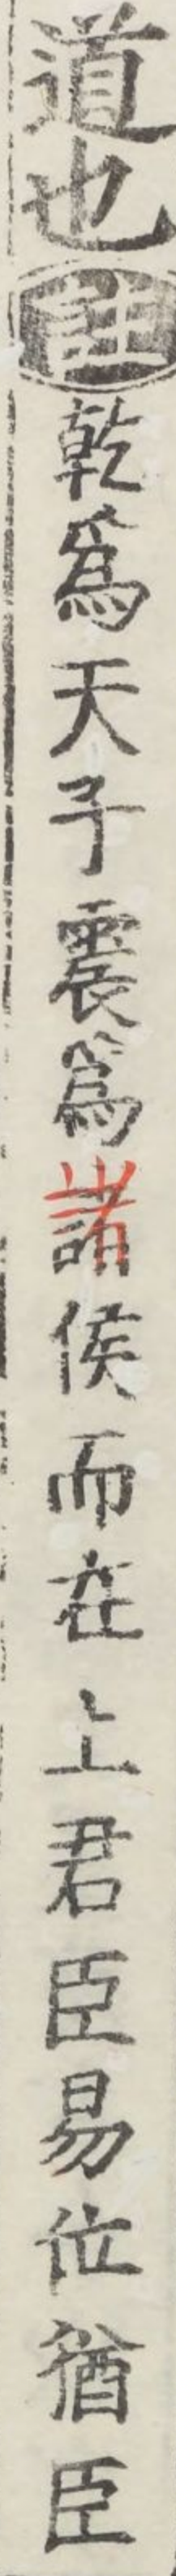 道也注乾爲天子震爲諸侯而在上君臣易位猶臣